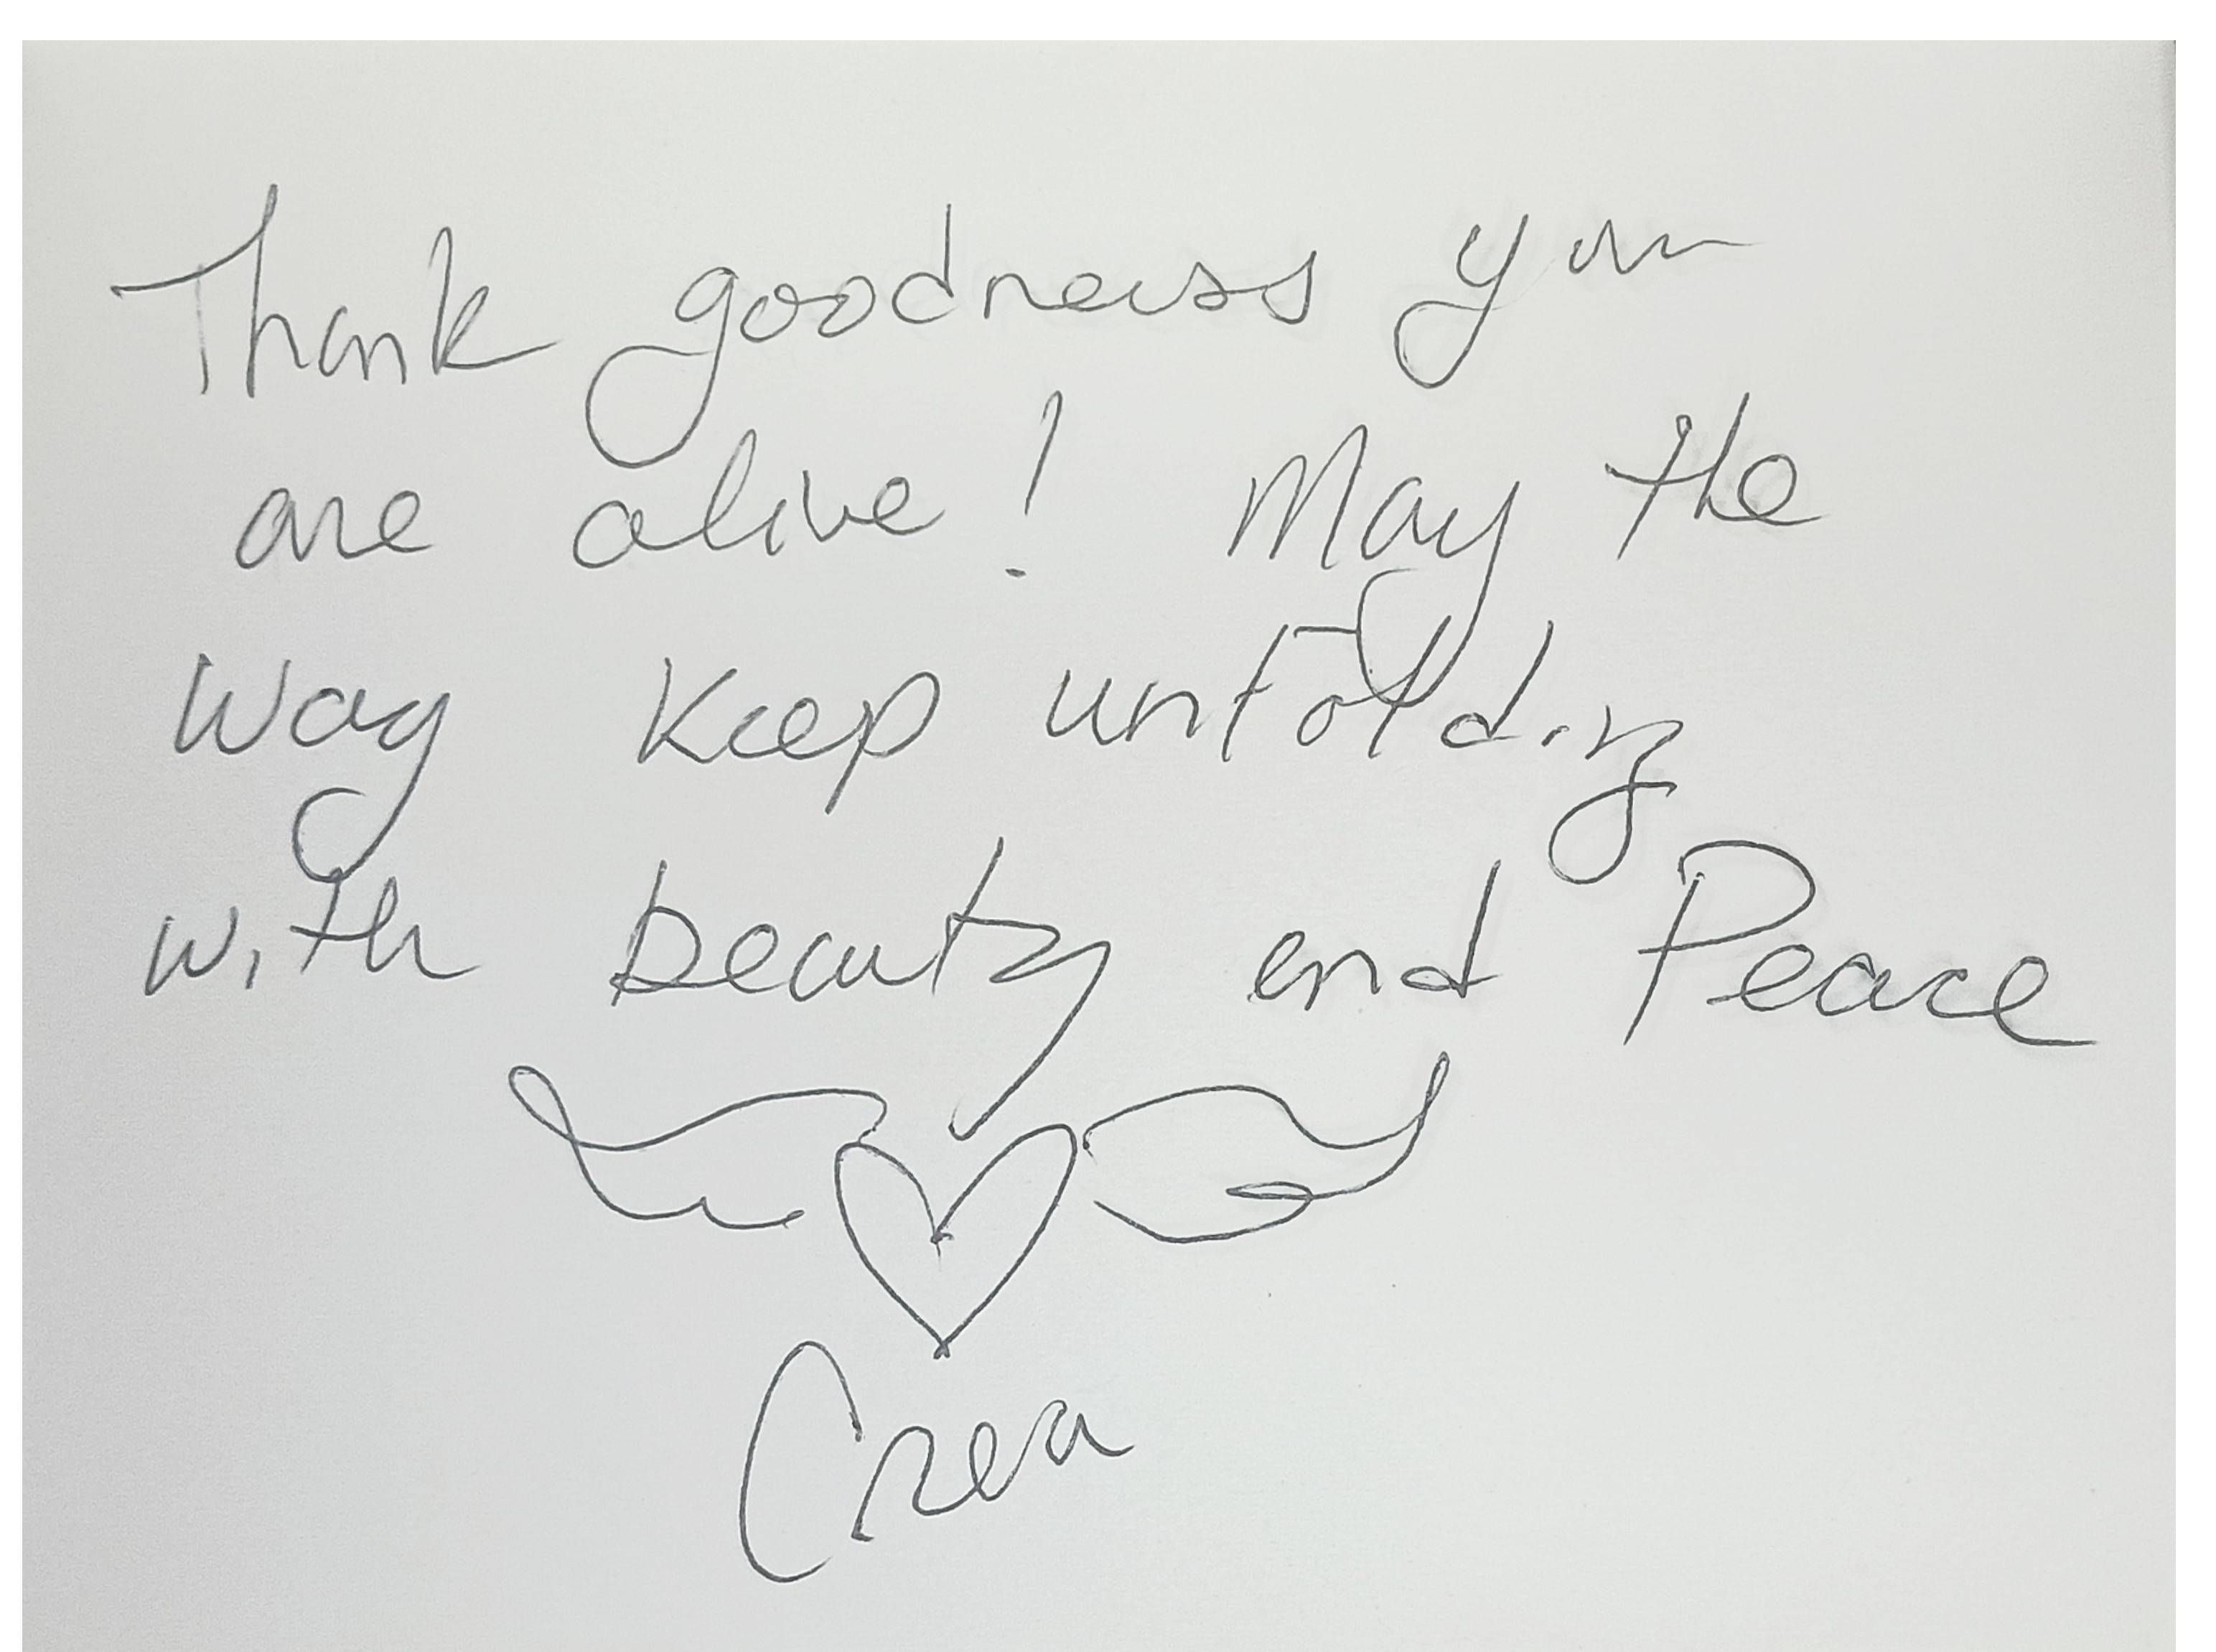 Thank goodness you
are alive! May the
Way Keep unfolding
with beauty and Peace
Crea